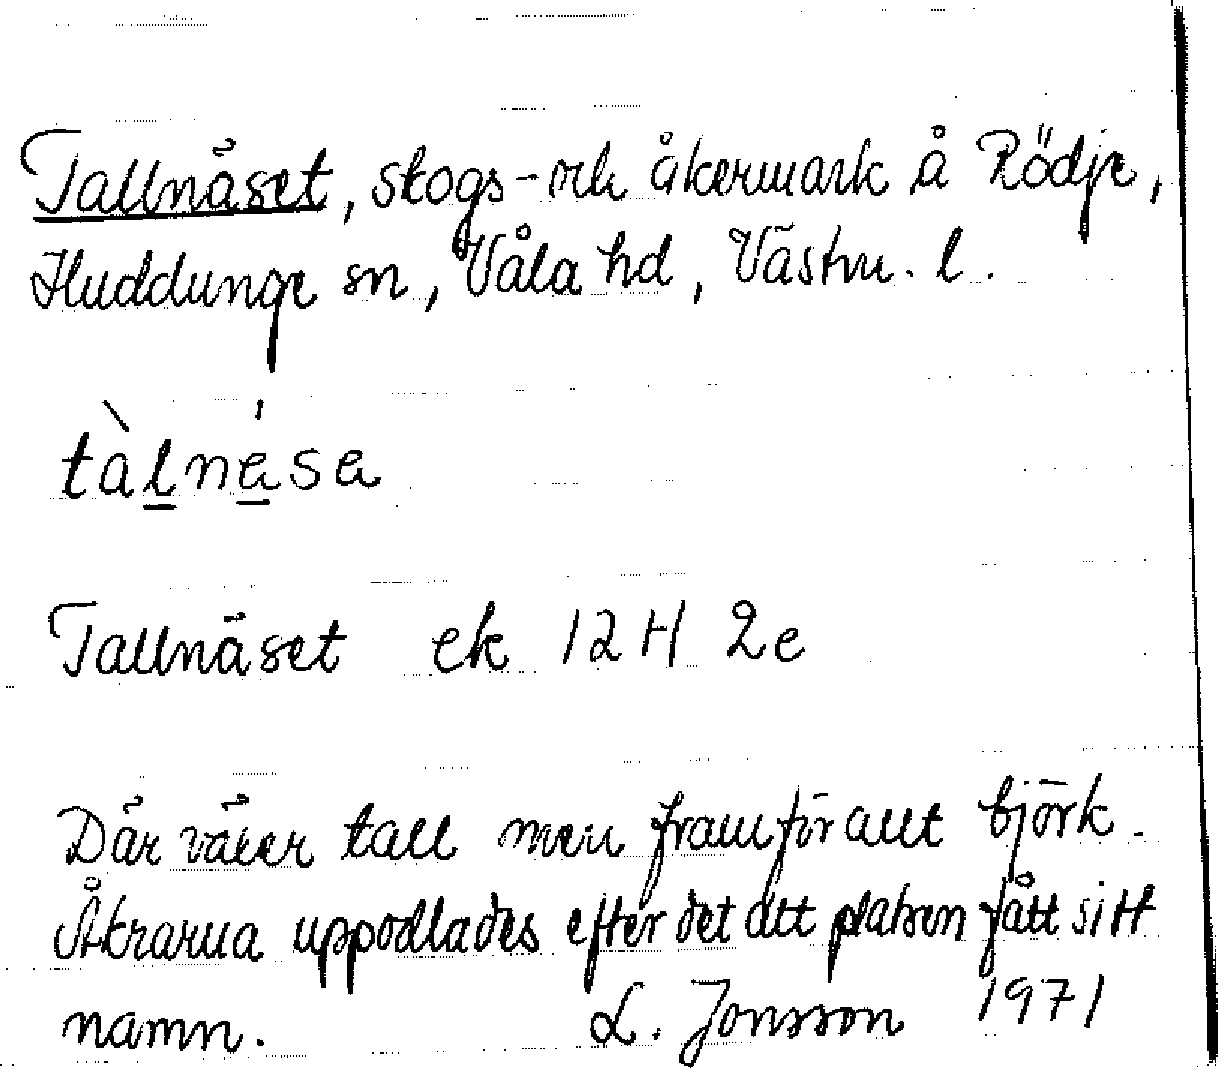 Tallnäset, skogs- och åkermark å Rödje,
Huddunge sn, Våla hd, Västm. l.
tàl̲nǽ̲sə
Tallnäset ek 12H 2e
Där växer tall men framför allt björk.
Åkrarna uppodlades efter det att platsen fått sitt
namn. L. Jonsson 1971